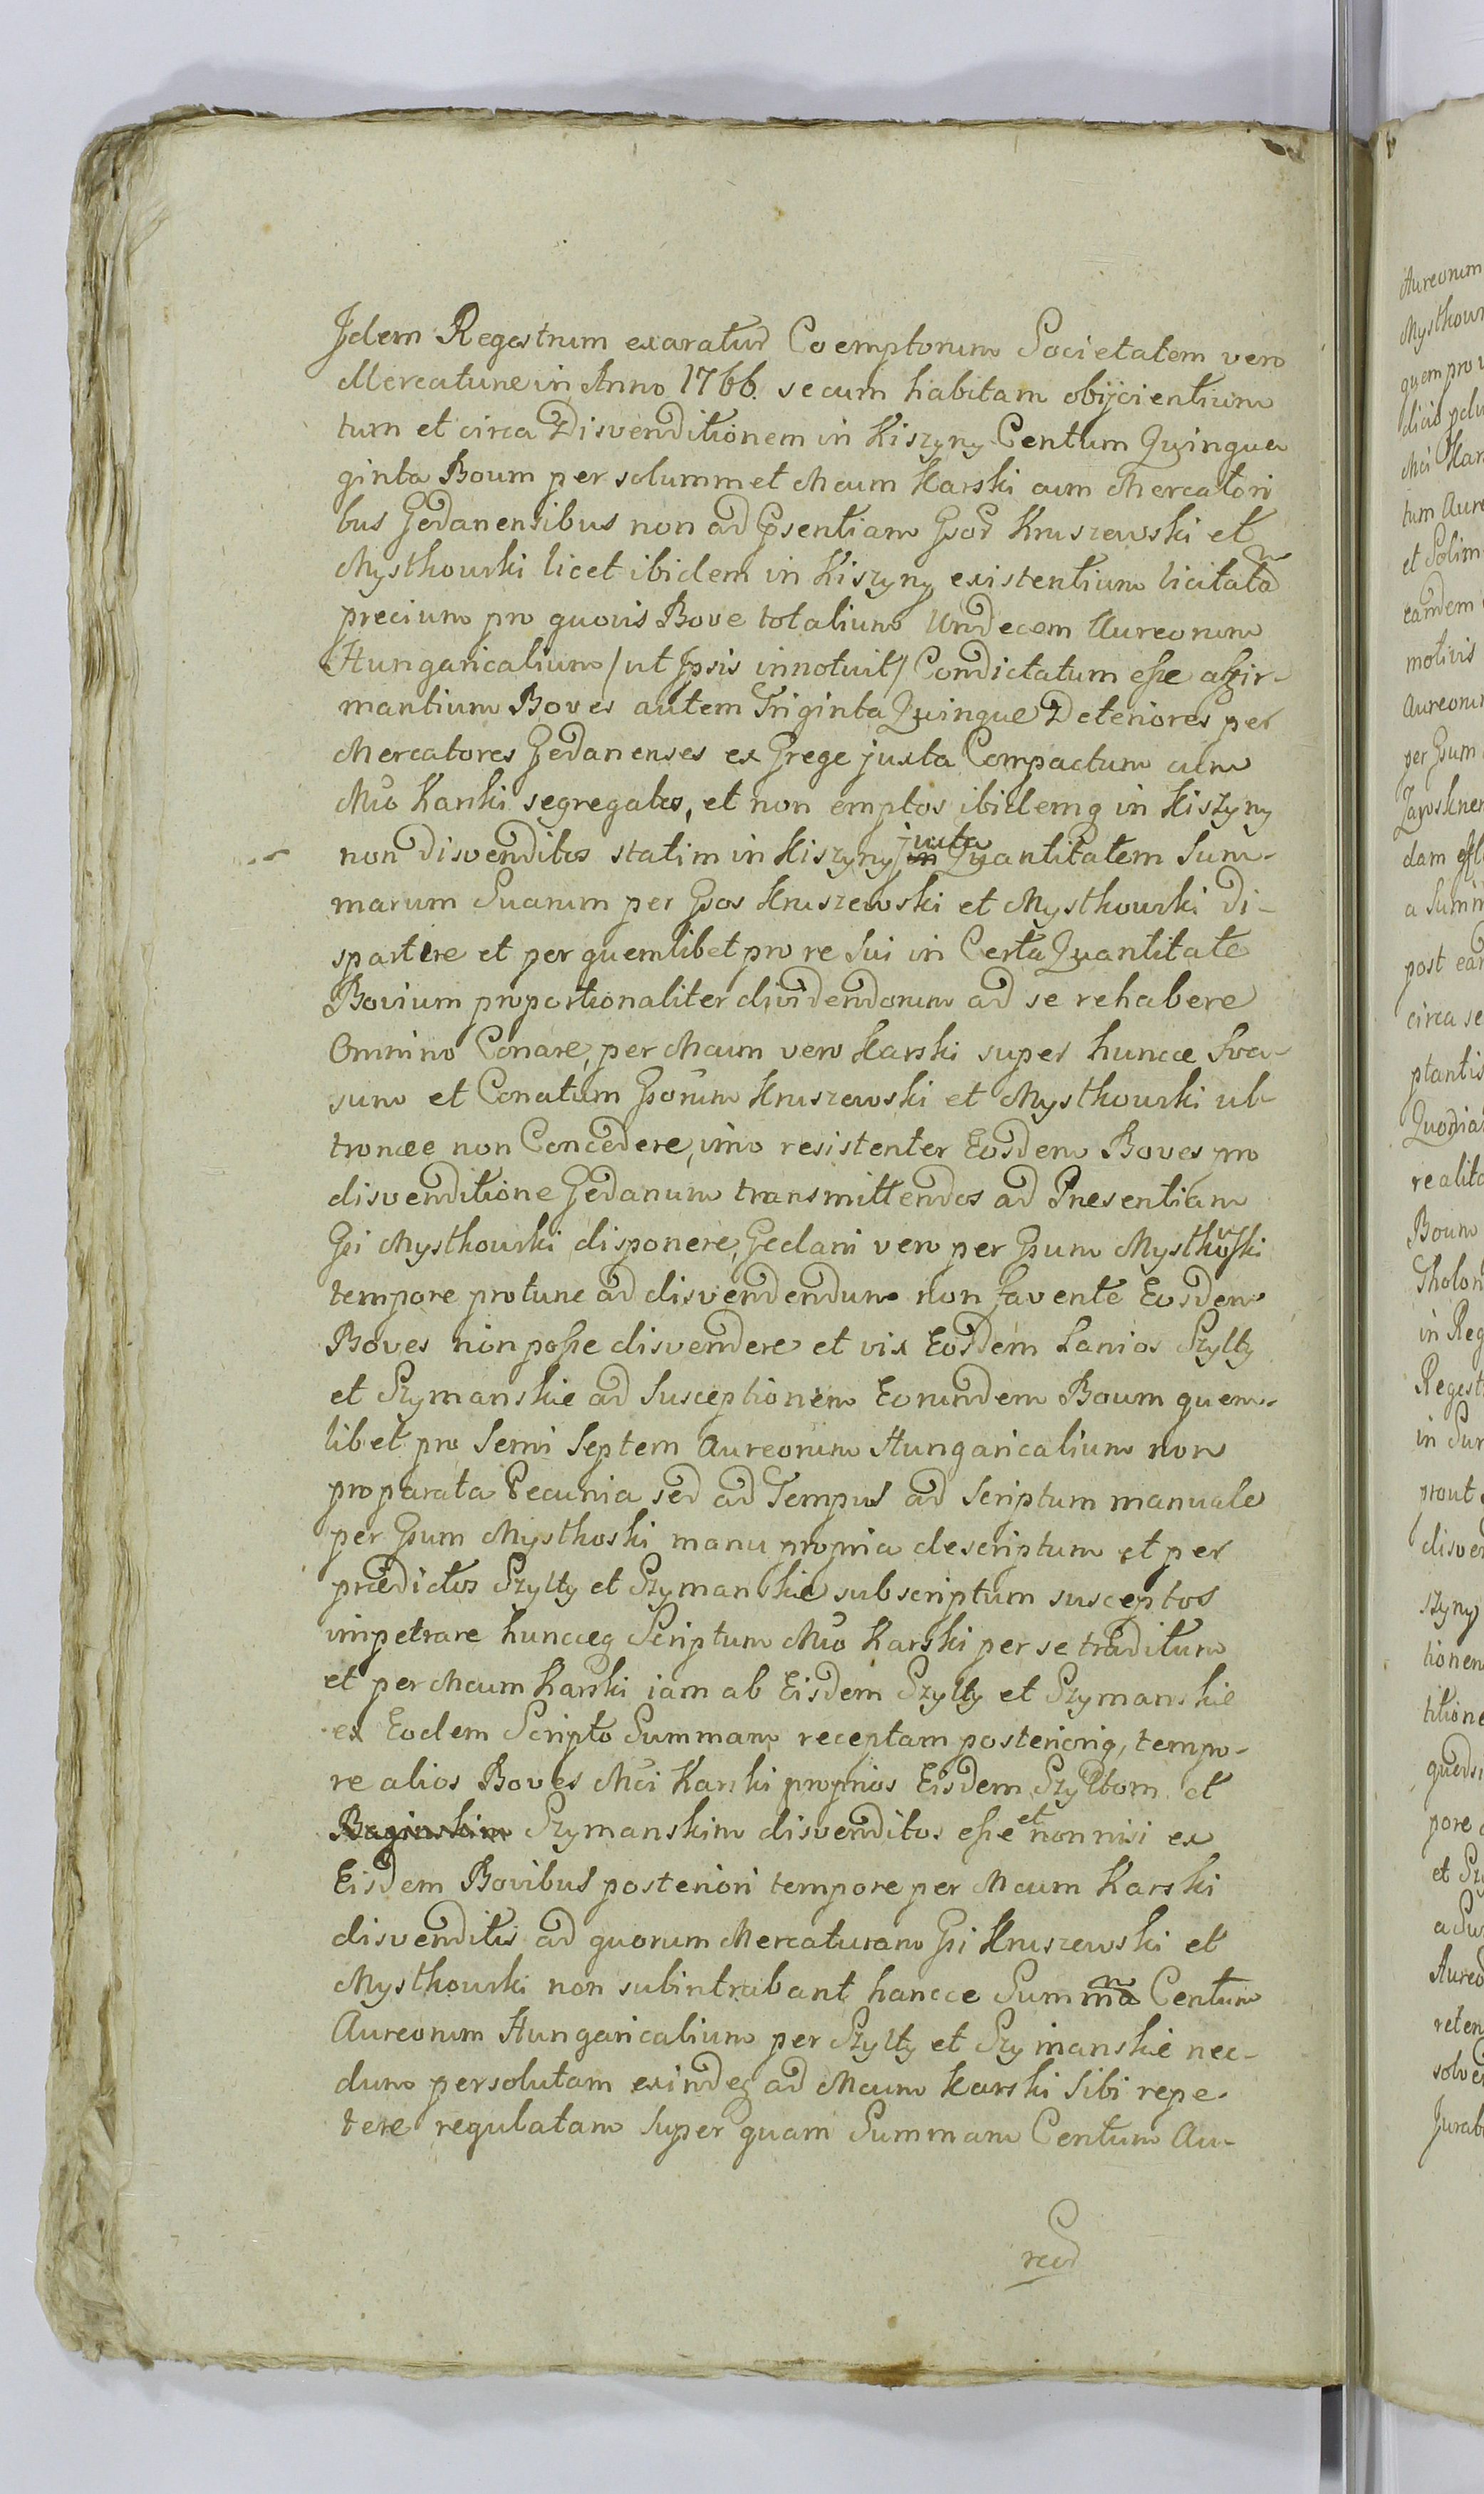 Idem Regestrum exaratur Coemptorum Societatem vero
Mercaturæ in Anno 1766. secum habitam obijcientium
tum et circa Disvenditionem in Kiszyny Centum Quinqua
ginta Boum per solummet Mcum Karski cum Mercatori
bus Gedanensibus non ad Psentiam Gsor Kruszewski et
Mysthowski licet ibidem in Kiszyny existentium licitatam
precium pro quovis Bove totalium Undecem Aureorum
Hungaricalium /ut Ipsis innotuit/ Condictatum esse affir-
mantium Boves autem Triginta Quinque Deteriores per
Mercatores Gedanenses ex Grege juxta Compactum cum
Mco Karski segregatos, et non emptos ibidemq in Kiszyny
non disvenditos statim in Kiszyny juxta Quantitatem Sum-
marum Suarum per Gsos Kruszewski et Mysthowski di-
spartire et per quemlibet pro re Sui in Certa Quantitate
Bovium proportionaliter dividendorum ad se rehabere
Omnino Conare, per Mcum vero Karski super huncce Sva-
sum et Conatum Gsorum Kruszewski et Mysthowski ul-
troncæ non Concedere, imo resistenter Eosdem Boves pro
disvenditione Gedanum transmittendos ad Presentiam
Gsi Mysthowski disponere, Gedani vero per Gsum Mysthowski
tempore protunc ad disvendendum non favente Eosdem
Boves non posse disvendere et vix Eosdem Lanios Szylty
et Szymanskie ad Susceptionem Eorundem Boum quem-
libet pro Semi Septem Aureorum Hungaricalium non
pro parata Pecunia sed ad Tempus ad Scriptum manuale
per Gsum Mysthoski manu propria descriptum et per
prædictos Szylty et Szymanskie subscriptum susceptos
impetrare huncceq Scriptum Mco Karski per se traditum
et per Mcum Karski iam ab Eisdem Szylty et Szymanskie
ex Eodem Scripto Summam receptam posteriorig, tempo-
re alios Boves Mci Karski proprios Eisdem Szyltom et
Baginskim Szymanskim disvenditos esse et nonnisi ex
Eisdem Bovibus posteriori tempore per Mcum Karski
disvenditis ad quorum Mercaturam Gsi Kruszewski et
Mysthowski non subintrabant hancce Summam Centum
Aureorum Hungaricalium per Szylty et Szymanskie nec-
dum persolutam exindeq ad Mcum Karski Sibi repe-
tere regulatam Super quam Summam Centum Au-
reor